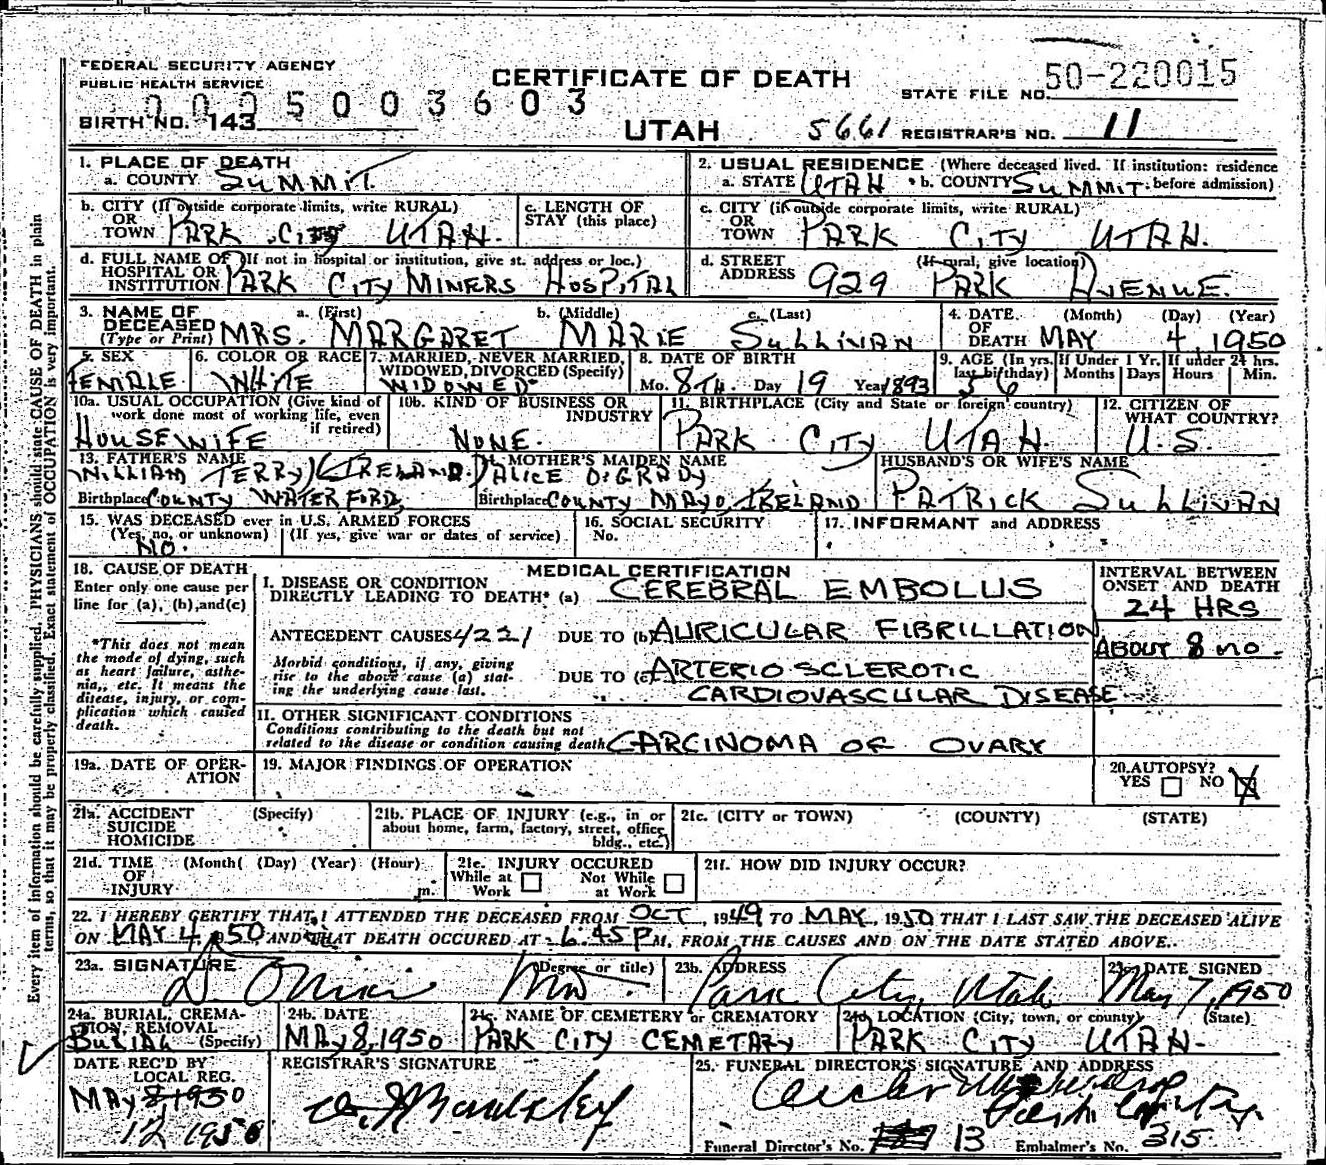 FEDERAL SECURITY AGENCY
PUBLIC HEALTH SERVICE
CERTIFICATE OF DEATH
STATE FILE NO. 50-220015
0005003603
BIRTH NO. 143
UTAH
5661 REGISTRAR'S NO. 11
1. PLACE OF DEATH
a. COUNTY SUMMIT
2. USUAL RESIDENCE (Where deceased lived. If institution: residence
a. STATE UTAH b. COUNTY SUMMIT before admission)
b. CITY (If outside corporate limits, write RURAL)
OR
TOWN PARK CITY UTAH.
c. LENGTH OF
STAY (this place)
c. CITY (if outside corporate limits, write RURAL)
OR
TOWN PARK CITY UTAH.
d. FULL NAME OF (If not in hospital or institution, give st. address or loc.)
HOSPITAL OR
INSTITUTION PARK CITY MINERS HOSPITAL
d. STREET (If rural, give location)
ADDRESS 929 PARK AVENUE.
3. NAME OF a. (First) b. (Middle) c. (Last)
DECEASED
(Type or Print) MRS. MARGARET MARIE SULLIVAN
4. DATE (Month) (Day) (Year)
OF
DEATH MAY 4, 1950
5. SEX
FEMALE
6. COLOR OR RACE
WHITE
7. MARRIED, NEVER MARRIED,
WIDOWED, DIVORCED (Specify)
WIDOWED
8. DATE OF BIRTH
Mo. 8TH. Day 19 Year 1893
9. AGE (In yrs. last birthday) 56
If Under 1 Yr. Months Days
If under 24 hrs. Hours Min.
10a. USUAL OCCUPATION (Give kind of
work done most of working life, even
if retired)
HOUSEWIFE
10b. KIND OF BUSINESS OR
INDUSTRY
NONE.
11. BIRTHPLACE (City and State or foreign country)
PARK CITY UTAH.
12. CITIZEN OF
WHAT COUNTRY?
U.S.
13. FATHER'S NAME
WILLIAM TERRY (IRELAND.)
Birthplace COUNTY WATERFORD,
14. MOTHER'S MAIDEN NAME
ALICE O'GRADY
Birthplace COUNTY MAYO, IRELAND
HUSBAND'S OR WIFE'S NAME
PATRICK SULLIVAN
15. WAS DECEASED ever in U.S. ARMED FORCES
(Yes, no, or unknown) (If yes, give war or dates of service)
NO.
16. SOCIAL SECURITY
No.
17. INFORMANT and ADDRESS
18. CAUSE OF DEATH
Enter only one cause per
line for (a), (b), and (c)
*This does not mean
the mode of dying, such
as heart failure, asthe-
nia,, etc. It means the
disease, injury, or com-
plication which caused
death.
MEDICAL CERTIFICATION
I. DISEASE OR CONDITION
DIRECTLY LEADING TO DEATH* (a) CEREBRAL EMBOLUS
ANTECEDENT CAUSES 4221 DUE TO (b) AURICULAR FIBRILLATION
Morbid conditions, if any, giving
rise to the above cause (a) stat-
ing the underlying cause last.
DUE TO (c) ARTERIOSCLEROTIC
CARDIOVASCULAR DISEASE
II. OTHER SIGNIFICANT CONDITIONS
Conditions contributing to the death but not
related to the disease or condition causing death CARCINOMA OF OVARY
INTERVAL BETWEEN
ONSET AND DEATH
24 HRS
ABOUT 8 MO.
19a. DATE OF OPER-
ATION
19. MAJOR FINDINGS OF OPERATION
20. AUTOPSY?
YES NO X
21a. ACCIDENT (Specify)
SUICIDE
HOMICIDE
21b. PLACE OF INJURY (e.g., in or
about home, farm, factory, street, office
bldg., etc.)
21c. (CITY or TOWN) (COUNTY) (STATE)
21d. TIME (Month( (Day) (Year) (Hour)
OF
INJURY m.
21e. INJURY OCCURED
While at Work
Not While at Work
21f. HOW DID INJURY OCCUR?
22. I HEREBY CERTIFY THAT I ATTENDED THE DECEASED FROM OCT, 1949 TO MAY, 1950 THAT I LAST SAW THE DECEASED ALIVE
ON MAY 4, 1950, AND THAT DEATH OCCURED AT 6:45 P M, FROM THE CAUSES AND ON THE DATE STATED ABOVE.
23a. SIGNATURE (Degree or title)
MD.
23b. ADDRESS
Park City, Utah
23c. DATE SIGNED
May 7, 1950
24a. BURIAL, CREMA-
TION, REMOVAL
BURIAL (Specify)
24b. DATE
MAY 8, 1950
24c. NAME OF CEMETERY or CREMATORY
PARK CITY CEMETARY
24d. LOCATION (City, town, or county) (State)
PARK CITY UTAH.
DATE REC'D BY
LOCAL REG.
MAY 8 1950
12 1950
REGISTRAR'S SIGNATURE
25. FUNERAL DIRECTOR'S SIGNATURE AND ADDRESS
Funeral Director's No. 13 Embalmer's No. 315.
Every item of information should be carefully supplied. PHYSICIANS should state CAUSE OF DEATH in plain
terms, so that it may be properly classified. Exact statement of OCCUPATION is very important.